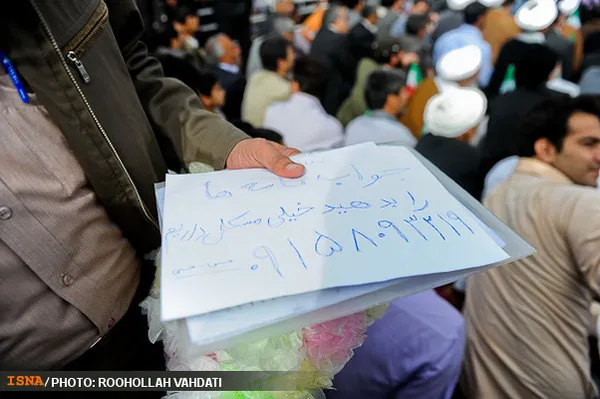 جواب نامه ها
را بدهید خیلی مشکل داریم
۰۹۱۵۸۰۹۳۲۱۹
ISNA/PHOTO: ROOHOLLAH VAHDATI